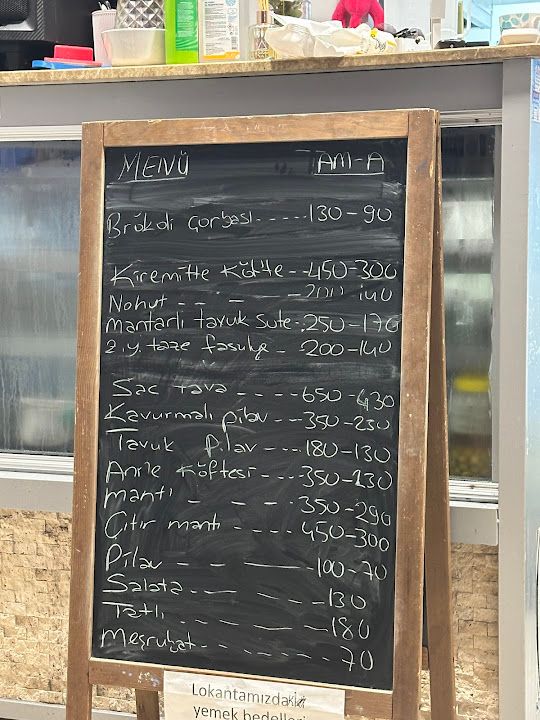 MENÜ TAM-A
Brokoli Çorbası-----130-90
Kiremitte Köfte--450-300
Nohut -- - --200 140
mantarlı tavuk sote-250-170
z.y. taze fasulye - 200-140
Sac tava ----650-430
Kavurmalı pilav --350-230
Tavuk pilav ---180-130
Anne köftesi ---350-230
mantı - - --350-290
Çıtır mantı ----450-300
Pilav -- ---100-70
Salata - ---130
Tatlı - - --180
Meşrubat ------70
Lokantamızdaki
yemek bedelleri